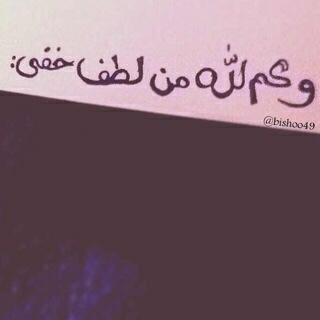 وكم لله من لطف خفي:
@bishoo49